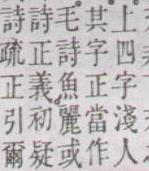 上四字淺人
其字正當作
毛詩魚麗或
詩正義初疑
詩疏正引爾